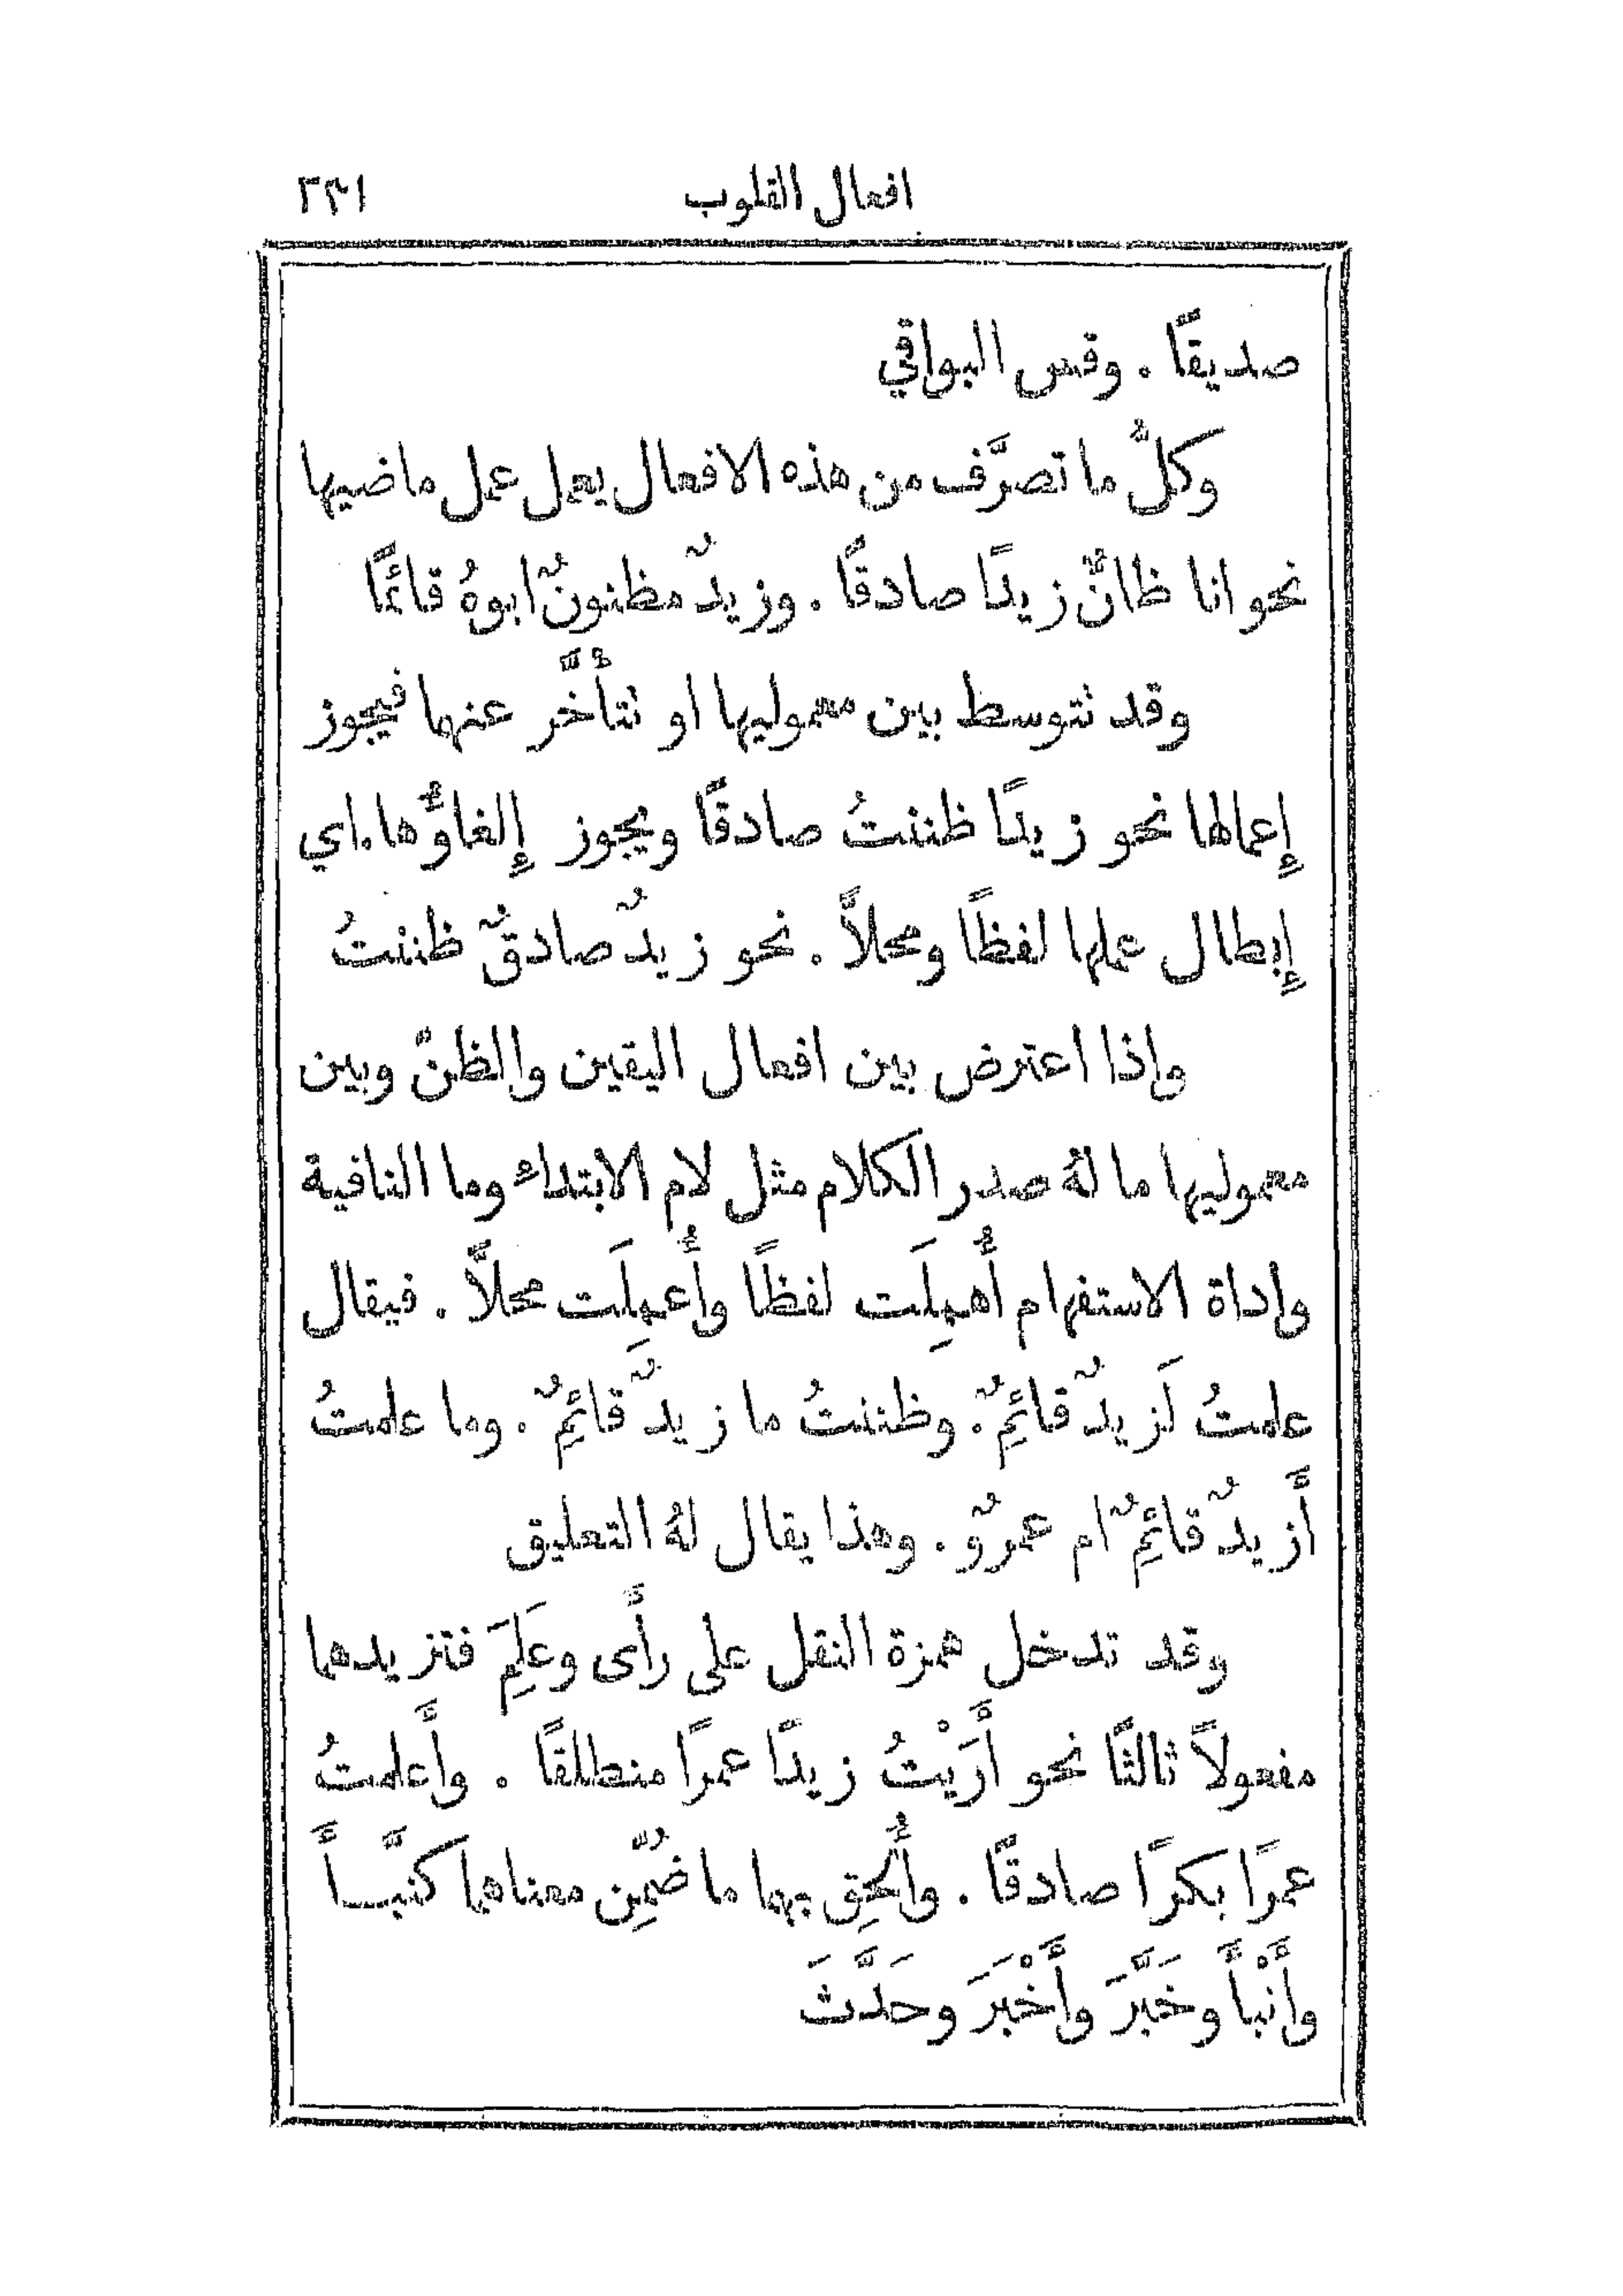 افعال القلوب ٢٣١
صديقًا . وقس البواقي
وكلُّ ما تصرَّف من هذه الافعال يعمل عمل ماضيها
نحو انا ظانٌّ زيدًا صادقًا . وزيدٌ مظنونٌ ابوهُ قائمًا
وقد نتوسط بين معموليها او نتأَخَّر عنها فيجوز
إِعمالها نحو زيدًا ظننتُ صادقًا ويجوز إِلغاؤُها. اي
إِبطال عملها لفظًا ومحلاًّ . نحو زيدٌ صادقٌ ظننتُ
واذا اعترض بين افعال اليقين والظنّ وبين
معموليها ما لهُ صدر الكلام مثل لام الابتداء وما النافية
واداة الاستفهام أُهمِلَت لفظًا وأُعمِلَت محلاًّ . فيقال
علمتُ لَزيدٌ قائِمٌ . وظننتُ ما زيدٌ قائِمٌ . وما علمتُ
أَزيدٌ قائِمٌ ام عمرٌو . وهذا يقال لهُ التعليق
وقد تدخل همزة النقل على رأَى وعَلِمَ فتزيدهما
مفعولاً ثالثًا نحو أَرَيْتُ زيدًا عمرًا منطلقًا . وأَعلمتُ
عمرًا بكرًا صادقًا . وأُلحِق بهما ما ضُمِّن معناهما كنَبَّأَ
وأَنْبأَ وخَبَّرَ وأَخْبَرَ وحَدَّثَ